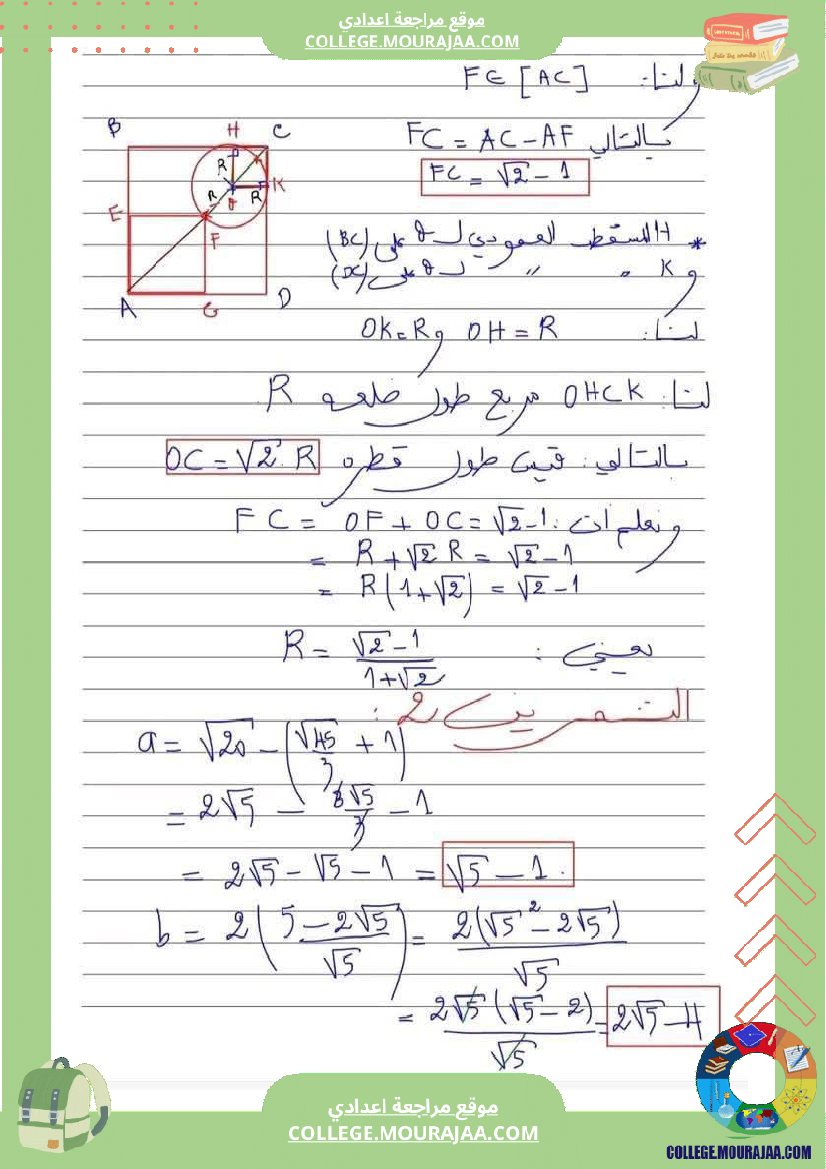 موقع مراجعة اعدادي
COLLEGE.MOURAJAA.COM
لنا: F ∈ [AC]
بالتالي FC = AC - AF
FC = √2 - 1
B H C
R
O K
R R
E
F
A G D
* H المسقط العمودي لـ O على (BC)
و K " " لـ O على (DC)
لنا: OH = R و OK = R
لنا: OHCK مربع طول ضلعه R
بالتالي: قيس طول قطره OC = √2 . R
ونعلم أن: FC = OF + OC = √2 - 1
= R + √2 R = √2 - 1
= R(1 + √2) = √2 - 1
يعني: R = (√2 - 1)/(1 + √2)
التمرين 2:
a = √20 - (√45/3 + 1)
= 2√5 - 3√5/3 - 1
= 2√5 - √5 - 1 = √5 - 1.
b = 2(5 - 2√5 / √5) = 2(√5² - 2√5) / √5
= 2√5(√5 - 2) / √5 = 2√5 - 4
موقع مراجعة اعدادي
COLLEGE.MOURAJAA.COM
COLLEGE.MOURAJAA.COM